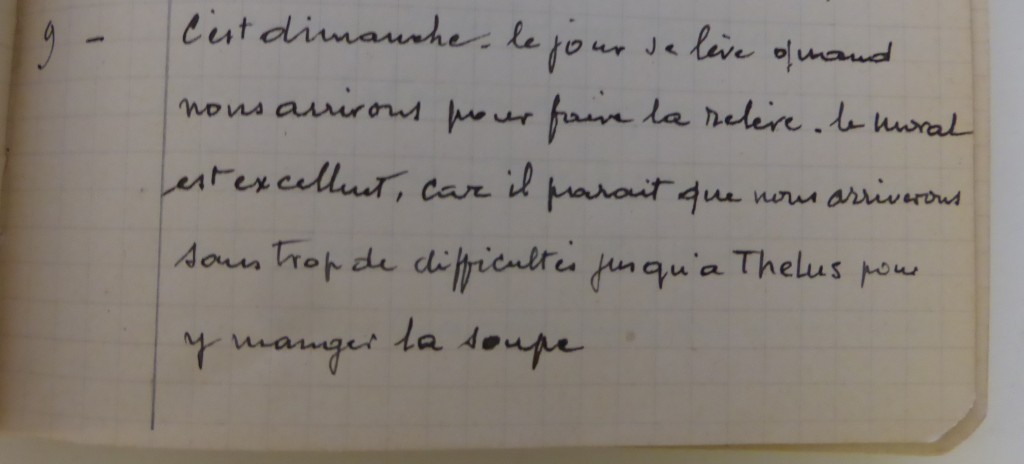 9 - C'est dimanche. le jour se lève quand
nous arrivons pour faire la relève. le moral
est excellent, car il parait que nous arriverons
sans trop de difficultés jusqu'a Thelus pour
y manger la soupe